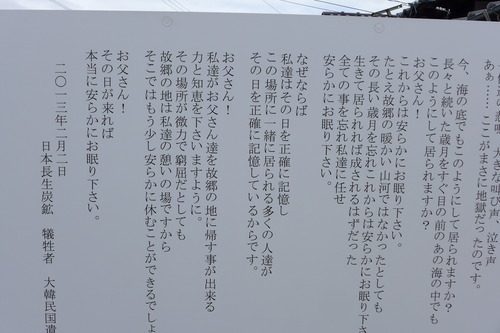 悲鳴、大きな叫び声、泣き声
あぁ……ここがまさに地獄だったのです。
今、海の底でもこのようにして居られますか?
長々と続いた歳月をすぐ目の前のあの海の中でも
このようにして居られますか?
お父さん!
これからは安らかにお眠り下さい。
たとえ故郷の暖かい山河ではなかったとしても
その長い歳月を忘れこれからは安らかにお眠り下さ
生きて居られれば成されるはずだった
全ての事を忘れ私達に任せ
安らかにお眠り下さい。
なぜならば
私達はその日を正確に記憶し
この場所に一緒に居られる多くの人達が
その日を正確に記憶しているからです。
お父さん!
私達がお父さん達を故郷の地に帰す事が出来る
力と知恵を下さいますように。
その場所が微力で窮屈だとしても
故郷の地は私達の憩いの場ですから
そこではもう少し安らかに休むことができるでしょ
お父さん!
その日が来れば
本当に安らかにお眠り下さい。
二〇一三年二月二日
日本長生炭鉱 犠牲者 大韓民国遺